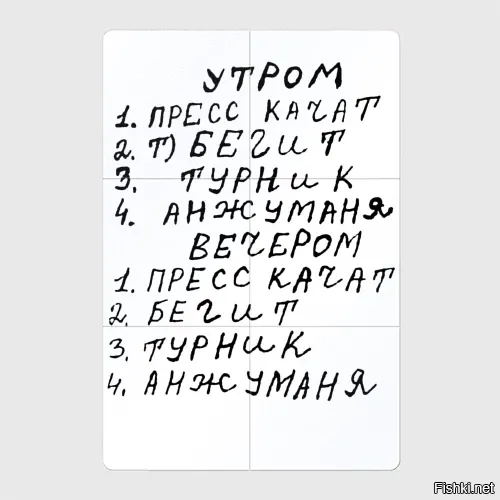 УТРОМ
1. ПРЕСС КАЧАТ
2. Т) БЕГИТ
3. ТУРНИК
4. АНЖУМАНЯ
ВЕЧЕРОМ
1. ПРЕСС КАЧАТ
2. БЕГИТ
3. ТУРНИК
4. АНЖУМАНЯ
Fishki.net